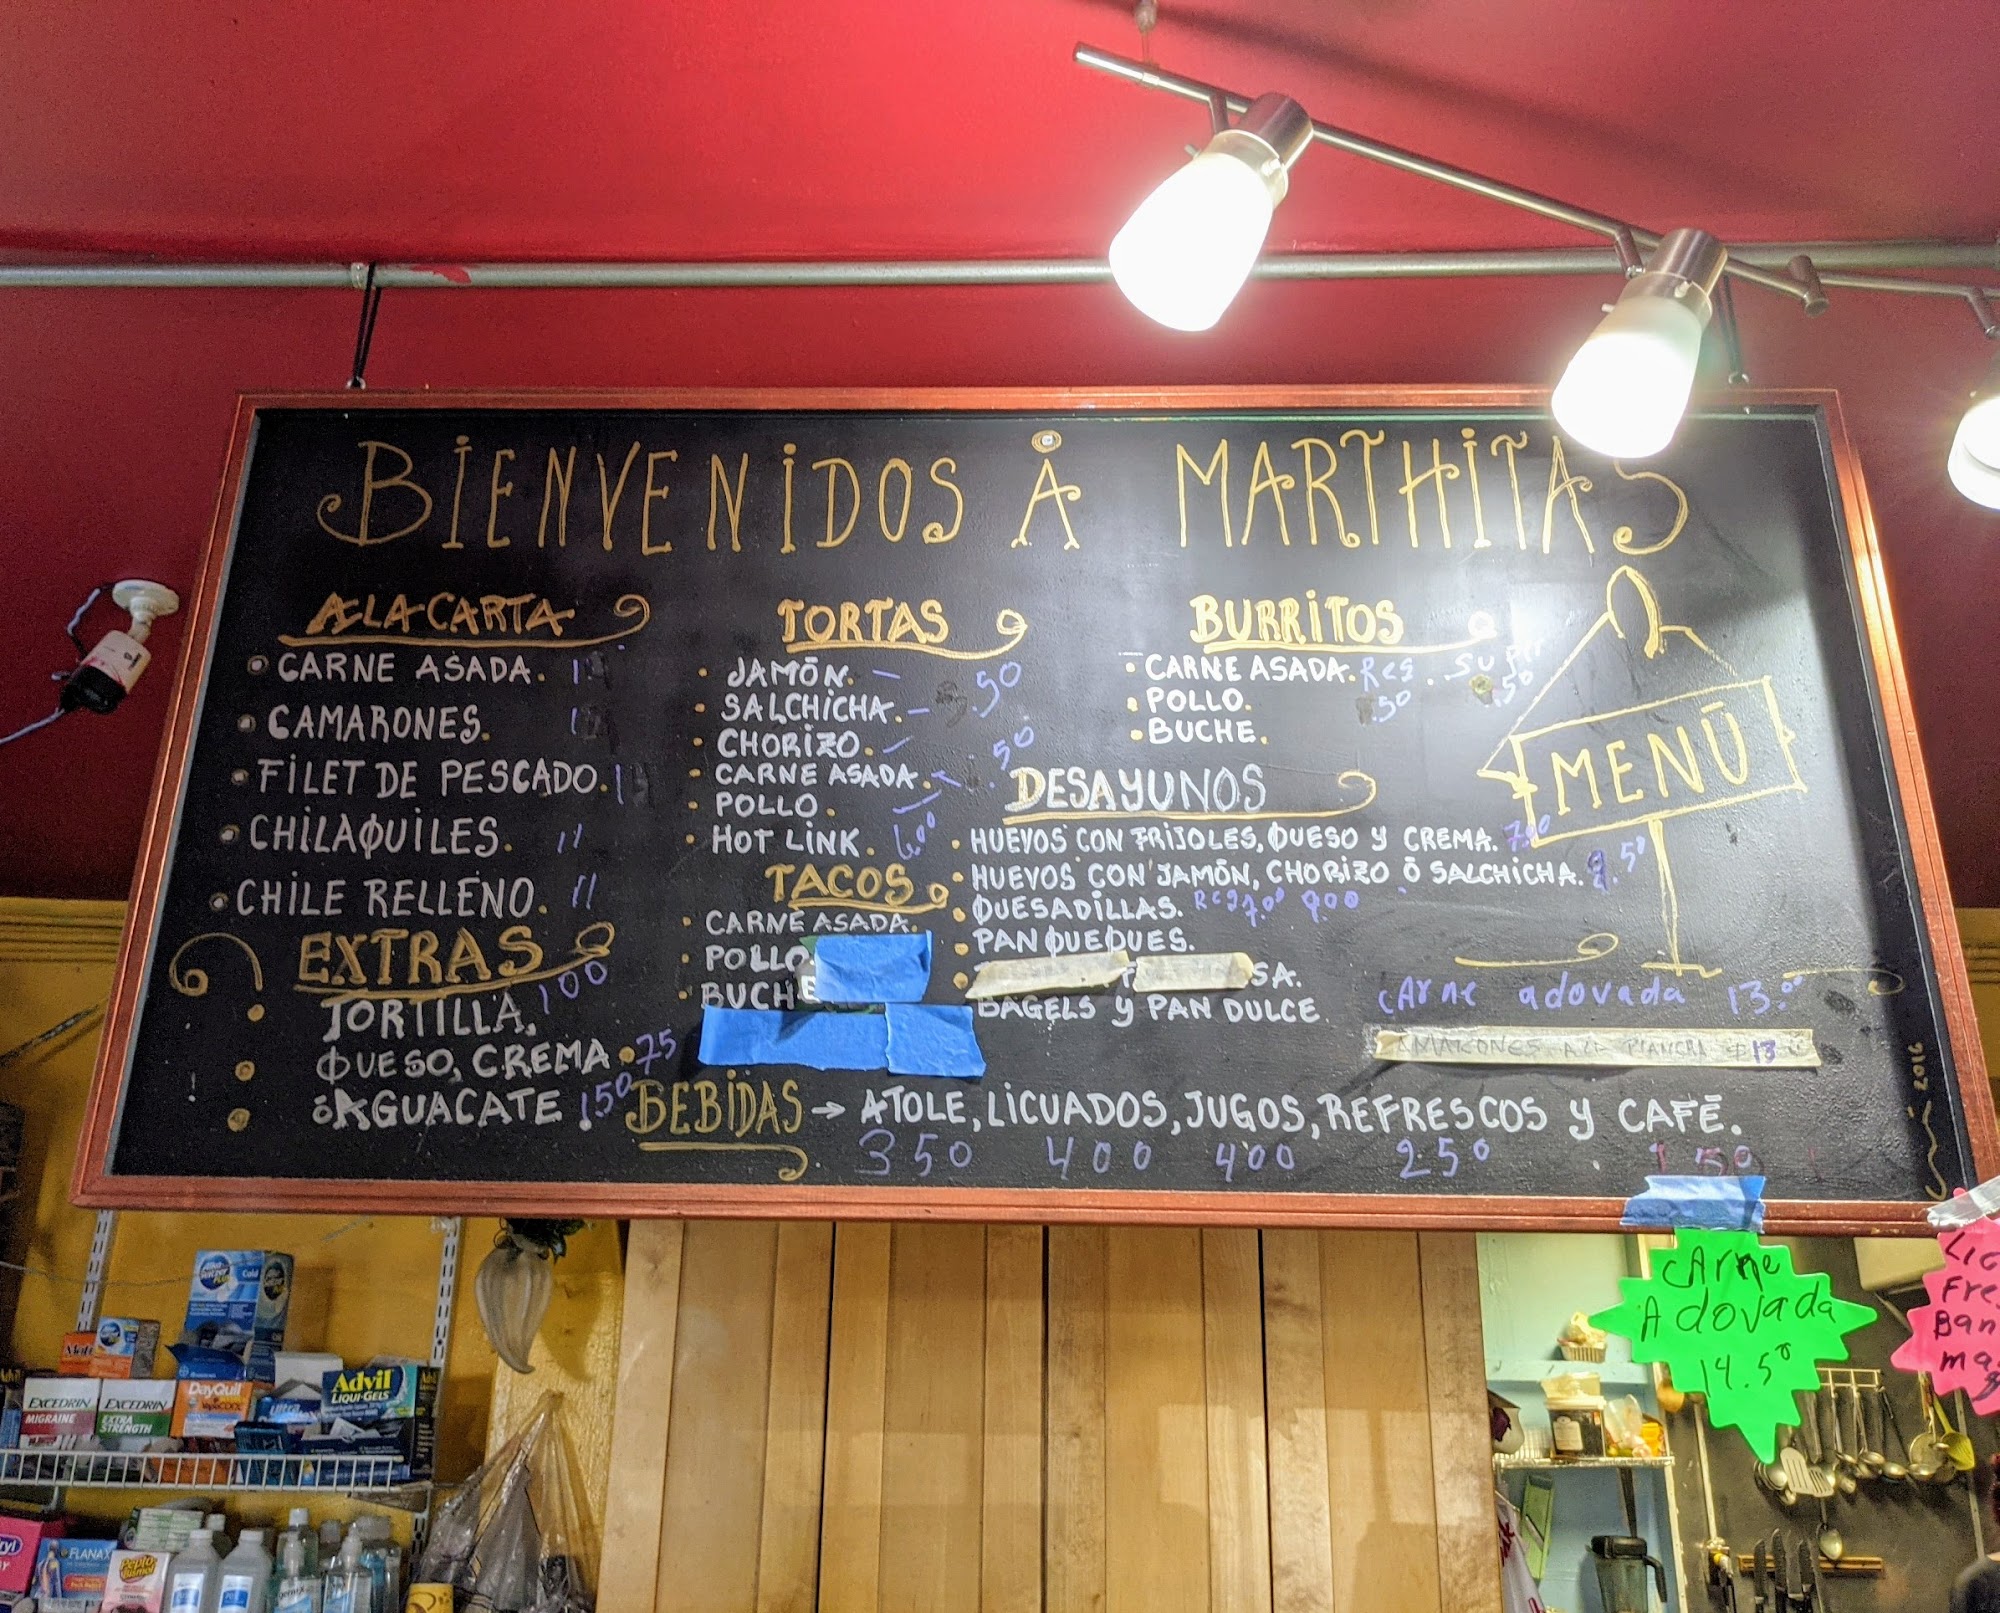 BIENVENIDOS A MARTHITAS
A LA CARTA
CARNE ASADA.
CAMARONES.
FILET DE PESCADO.
CHILAQUILES. 11
CHILE RELLENO. 11
EXTRAS
TORTILLA, 100
QUESO, CREMA .75
ó AGUACATE 1.50
TORTAS
JAMÓN. - .50
SALCHICHA. -
CHORIZO. - .50
CARNE ASADA. -
POLLO.
HOT LINK. 6.00
TACOS
CARNE ASADA.
POLLO
BUCHE
BURRITOS
CARNE ASADA. Reg. Super
POLLO. .50 .50
BUCHE.
DESAYUNOS
HUEVOS CON FRIJOLES, QUESO Y CREMA. 7.00
HUEVOS CON JAMÓN, CHORIZO Ó SALCHICHA. .50
QUESADILLAS. Reg 7.00 9.00
PANQUEQUES.
SA.
BAGELS Y PAN DULCE
MENÚ
CArne adovada 13.00
AMARONES A LA PLANCHA $13
2016
BEBIDAS → ATOLE, LICUADOS, JUGOS, REFRESCOS Y CAFÉ.
350 400 400 250 150
CArne
Adovada
14.50
Fre
Ban
ma
Alka-Seltzer PLUS Cold
EXCEDRIN
MIGRAINE
EXCEDRIN
EXTRA
STRENGTH
DayQuil
VapoCOOL
Advil
LIQUI-GELS
FLANAX
Pepto
Bismol